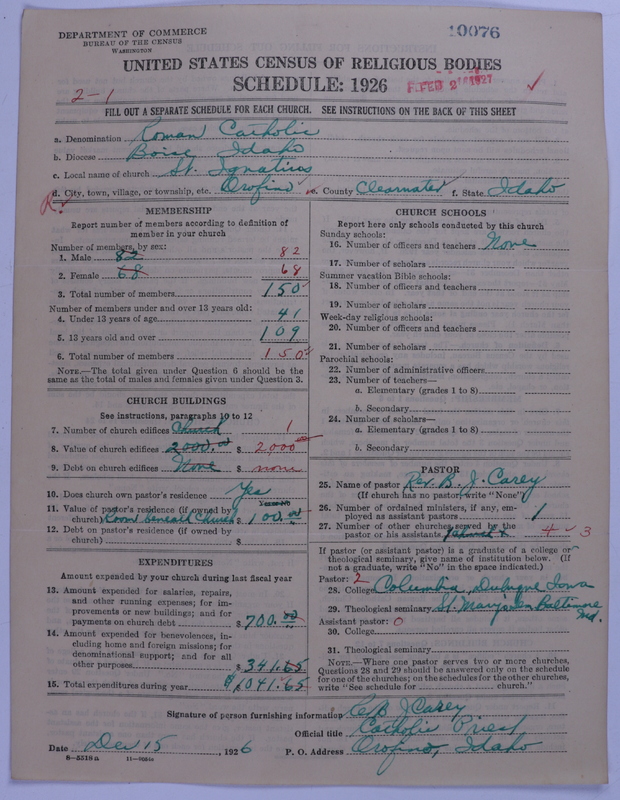 DEPARTMENT OF COMMERCE
BUREAU OF THE CENSUS
WASHINGTON
10076
UNITED STATES CENSUS OF RELIGIOUS BODIES
SCHEDULE: 1926
FEB 2 1927
2-1
FILL OUT A SEPARATE SCHEDULE FOR EACH CHURCH. SEE INSTRUCTIONS ON THE BACK OF THIS SHEET
a. Denomination Roman Catholic
b. Diocese Boise Idaho
c. Local name of church St. Ignatius
d. City, town, village, or township, etc. Orofino e. County Clearwater f. State Idaho
R.
MEMBERSHIP
Report number of members according to definition of
member in your church
Number of members, by sex:
1. Male 82 82
2. Female 68 68
3. Total number of members 150
Number of members under and over 13 years old:
4. Under 13 years of age 41
5. 13 years old and over 109
6. Total number of members 150
NOTE.—The total given under Question 6 should be the
same as the total of males and females given under Question 3.
CHURCH BUILDINGS
See instructions, paragraphs 10 to 12
7. Number of church edifices Church 1
8. Value of church edifices 2000.00 $ 2,000
9. Debt on church edifices None $ none
10. Does church own pastor's residence Yes
Yes or No
11. Value of pastor's residence (if owned by
church) Room beneath Church $ 100.00
12. Debt on pastor's residence (if owned by
church) $
EXPENDITURES
Amount expended by your church during last fiscal year
13. Amount expended for salaries, repairs,
and other running expenses; for im-
provements or new buildings; and for
payments on church debt $ 700.00
14. Amount expended for benevolences, in-
cluding home and foreign missions; for
denominational support; and for all
other purposes $ 341.65
15. Total expenditures during year $1041.65
CHURCH SCHOOLS
Report here only schools conducted by this church
Sunday schools:
16. Number of officers and teachers None
17. Number of scholars
Summer vacation Bible schools:
18. Number of officers and teachers
19. Number of scholars
Week-day religious schools:
20. Number of officers and teachers
21. Number of scholars
Parochial schools:
22. Number of administrative officers
23. Number of teachers—
a. Elementary (grades 1 to 8)
b. Secondary
24. Number of scholars—
a. Elementary (grades 1 to 8)
b. Secondary
PASTOR
25. Name of pastor Rev. B. J. Carey
(If church has no pastor, write "None")
26. Number of ordained ministers, if any, em-
ployed as assistant pastors 1
27. Number of other churches served by the
pastor or his assistants 4 3
If pastor (or assistant pastor) is a graduate of a college or
theological seminary, give name of institution below. (If
not a graduate, write "No" in the space indicated.)
Pastor: 2
28. College Columbia, Dubuque Iowa
29. Theological seminary St. Mary's in Baltimore
Md.
Assistant pastor: 0
30. College
31. Theological seminary
NOTE.—Where one pastor serves two or more churches,
Questions 28 and 29 should be answered only on the schedule
for one of the churches; on the schedules for the other churches,
write "See schedule for church."
Signature of person furnishing information B J Carey
Official title Catholic Priest
Date Dec 15, 1926 P. O. Address Orofino, Idaho
8—5518a